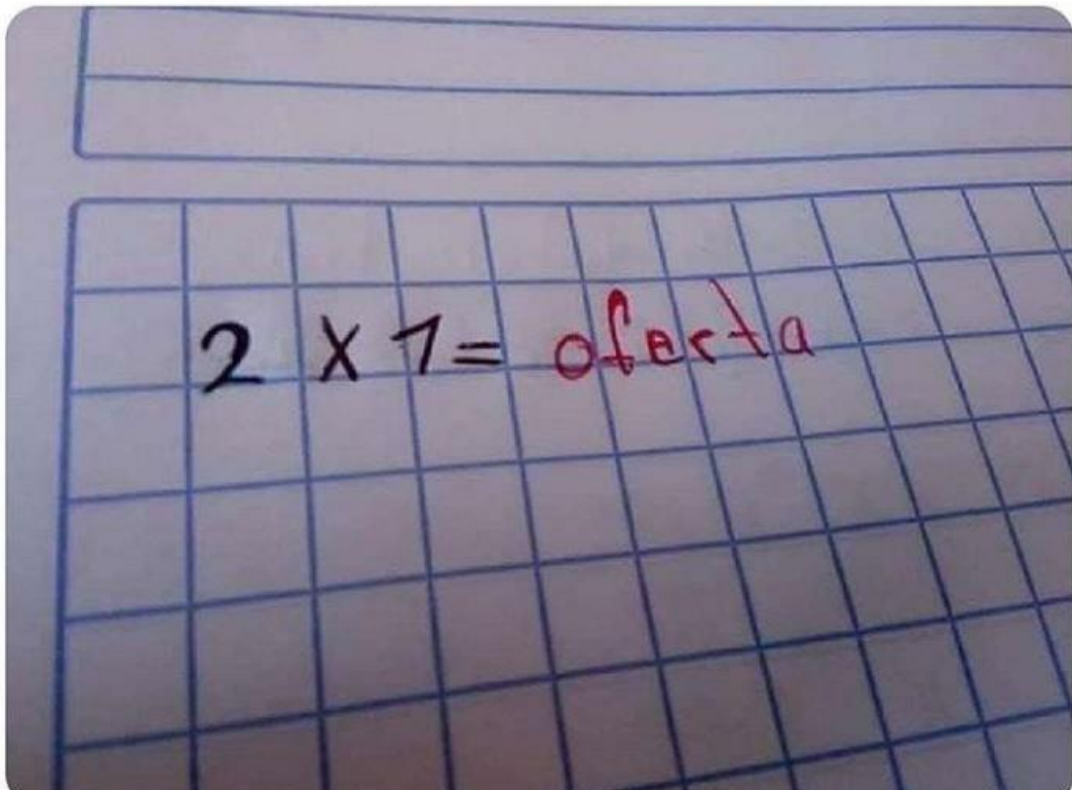 2 X 1 = oferta